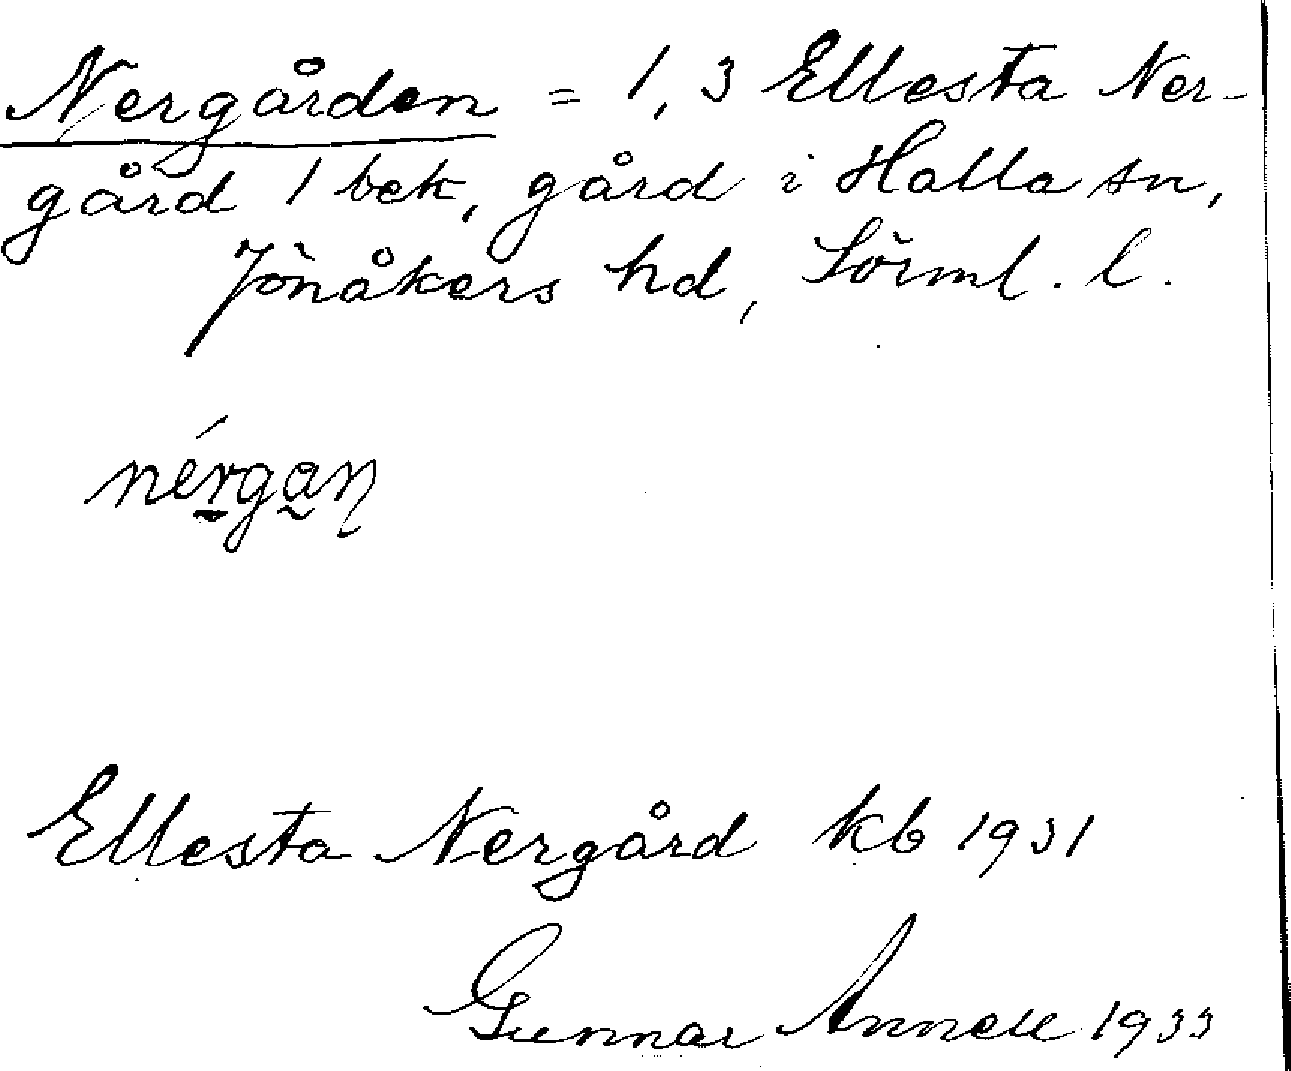 Nergården = 1,3 Ellesta Ner-
gård 1 bek, gård i Halla sn,
Jönåkers hd, Sörml. l.
nérgan
Ellesta Nergård kb 1931
Gunnar Annell 1933